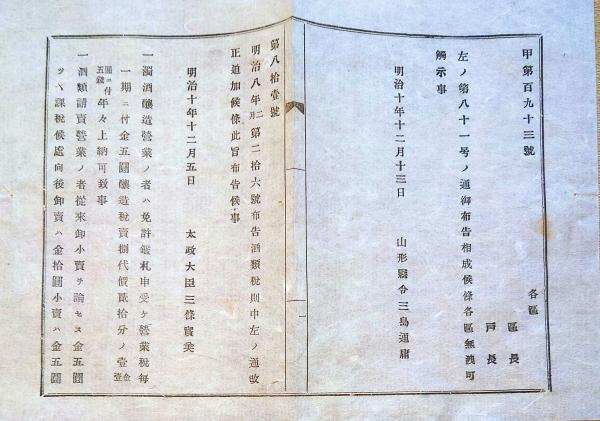 甲第百九十三號
各區
區長
戸長
左ノ第八十一号ノ通御布告相成候條各區無洩可
觸示事
明治十年十二月十三日
山形縣令三島通庸
第八拾壹號
明治八年二月第二拾六號布告酒類税則中左ノ通改
正追加候條此旨布告候事
明治十年十二月五日
太政大臣三條實美
一濁酒釀造營業ノ者ハ免許鑑札申受ケ營業税每
一期ニ付金五圓釀造税賣捌代價貳拾分ノ壹金壹
圓ニ付五錢年々上納可致事
一酒類請賣營業ノ者從來卸小賣ヲ論セス金五圓
ツヽ課税候處向後卸賣ハ金拾圓小賣ハ金五圓